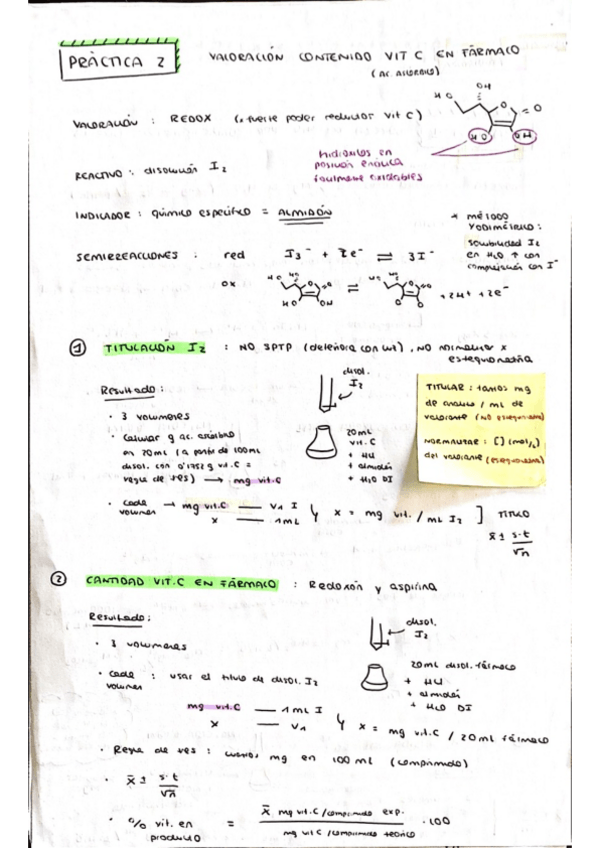 PRÁCTICA 2
VALORACIÓN CONTENIDO VIT C EN FÁRMACO
(AC. ASCÓRBICO)
VALORACIÓN : REDOX (x fuerte poder reductor vit C)
OH
HO
O
= O
HO
OH
hidroxilos en
posición enólica
fácilmente oxidables
REACTIVO : disolución I2
INDICADOR : químico específico = ALMIDÓN
* MÉTODO
YODIMÉTRICO :
solubilidad I2
en H2O ↑ con
complejación con I-
SEMIRREACCIONES : red I3- + 2e- ⇌ 3I-
ox ⇌ + 2H+ + 2e-
① TITULACIÓN I2 : NO SPTP (deteriora con luz), NO normalizar x
estequiometría
Resultado :
disol.
I2
· 3 volúmenes
· Calcular g ac. ascórbico
en 20mL (a partir de 100mL
disol. con 0'1752 g vit.C =
regla de tres) → mg vit.C
20mL
vit. C
+ HCl
+ almidón
+ H2O DI
TITULAR : tantos mg
de analito / mL de
valorante (NO estequiometría)
NORMALIZAR : [] (mol/L)
del valorante (estequiometría)
· Cada volumen → mg vit.C — V1 I
x — 1mL
x = mg vit. / mL I2 ] TÍTULO
x̄ ± s·t
√n
② CANTIDAD VIT.C EN FÁRMACO : Redoxón y aspirina
Resultado :
disol.
I2
· 3 volúmenes
· Cada volumen : usar el título de disol. I2
20mL disol. fármaco
+ HCl
+ almidón
+ H2O DI
mg vit.C — 1mL I
x — V1
x = mg vit.C / 20mL fármaco
· Regla de tres : mg en 100mL (comprimido)
· x̄ ± s·t
√n
· % vit. en producto = x̄ mg vit.C/comprimido exp. · 100
mg vit C /comprimido teórico